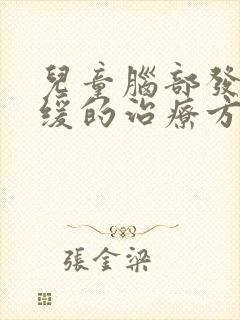 兒童腦部發
緩的治療方
張金梁